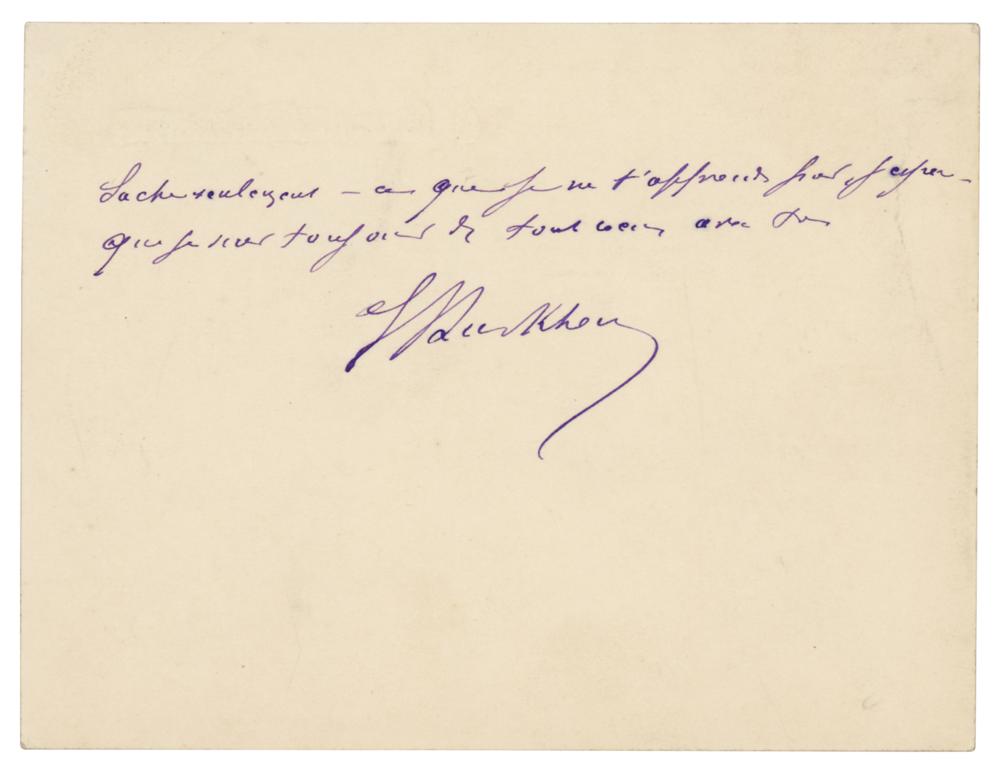 Sache seulement – ce que je ne t'apprends pas, j'espère –
que je suis toujours de tout cœur avec toi
E Durkheim